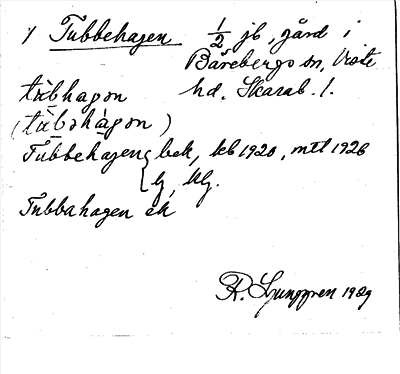 1 Tubbehagen 1/2 jb, gård i
Bärebergs sn, Viste
hd. Skarab. l.
tùbhagən
(tùbəhàgən)
Tubbehagen { bek, kb 1920, mtl 1926
lg, kg.
Tubbahagen ek
R. Ljunggren 1929